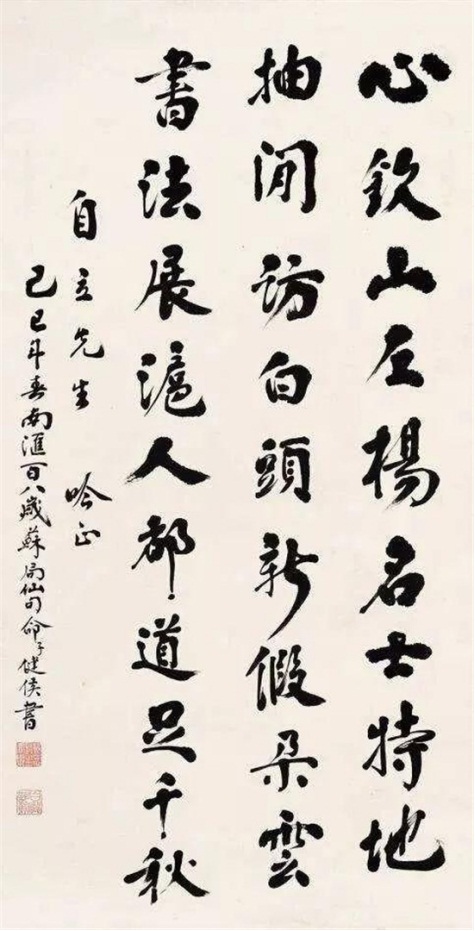 心欽山左楊名士特地
抽閒訪白頭新假朵雲
書法展滬人都道足千秋
自立先生 吟正
己巳年春南滙百八歲蘇局仙句命子健侯書